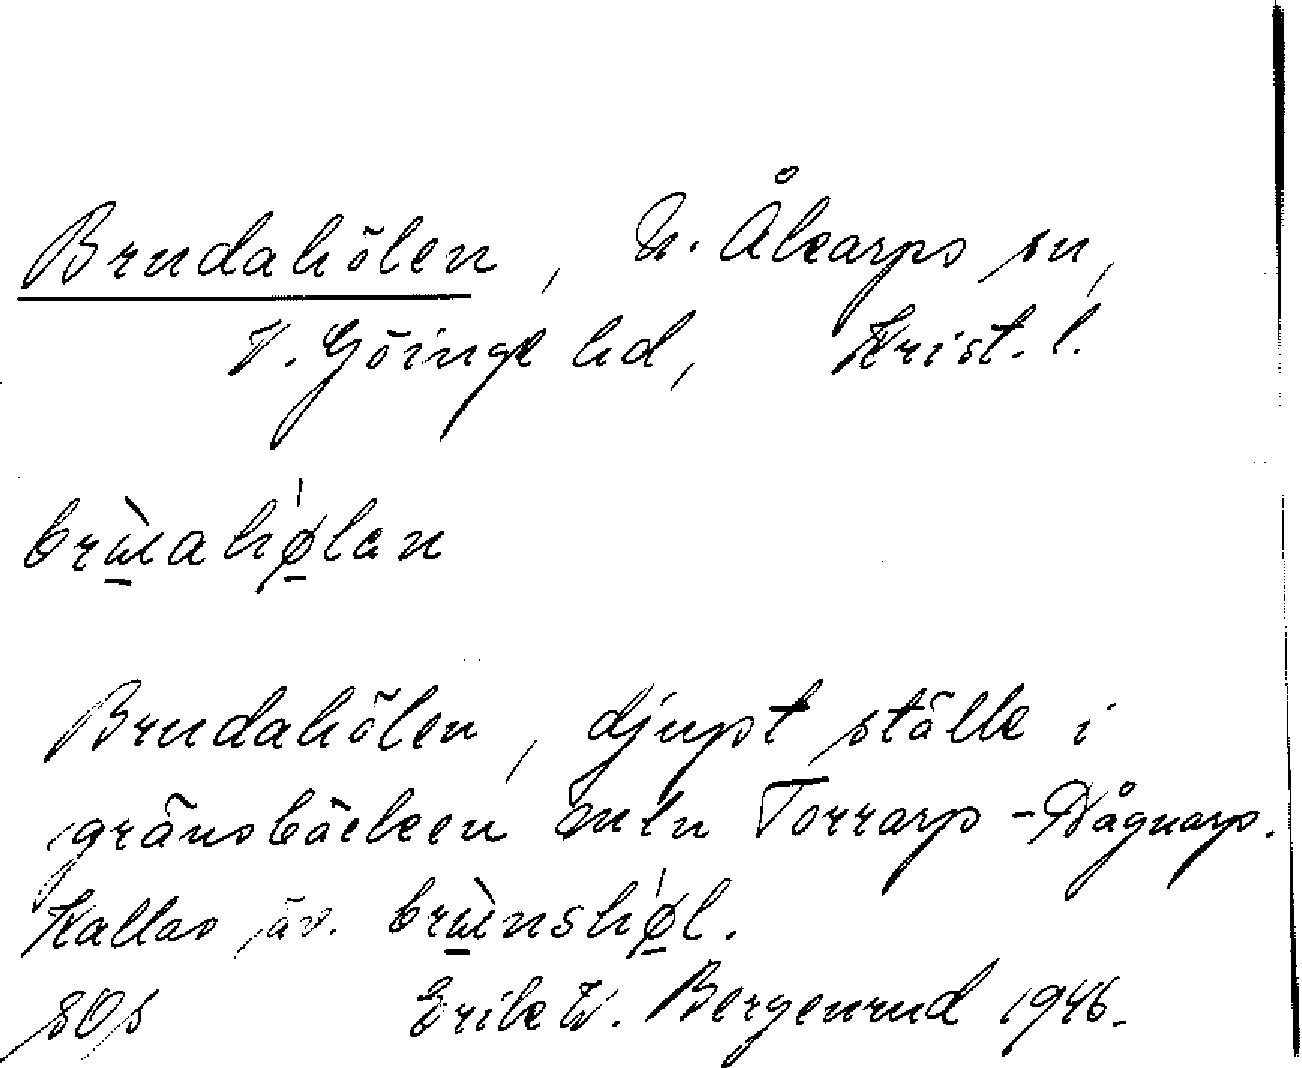 Brudahölen, N. Åkarps sn,
V. Göinge hd, Krist. l.
brɯ̀ahø̍lan
Brudahölen, djupt ställe i
gränsbäcken mln Torrarp - Vågnarp.
Kallas äv. brɯ̀nshø̍l.
Erik W. Bergenrud 1946.